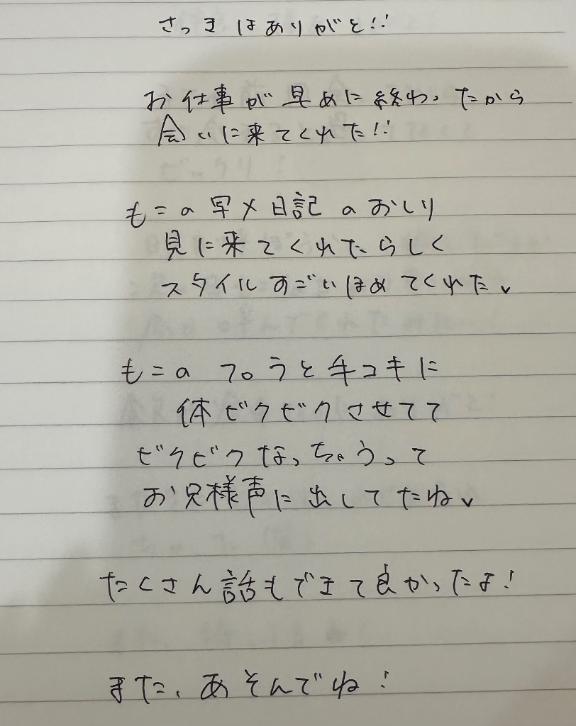 さっきはありがと!!
お仕事が早めに終わったから
会いに来てくれた!!
もこの写メ日記のおしり
見に来てくれたらしく
スタイルすごいほめてくれた♥
もこのフロうと手コキに
体ビクビクさせてて
ビクビクなっちゃうって
お兄様声に出してたね♥
たくさん話もできて良かったよ!
また、あそんでね!